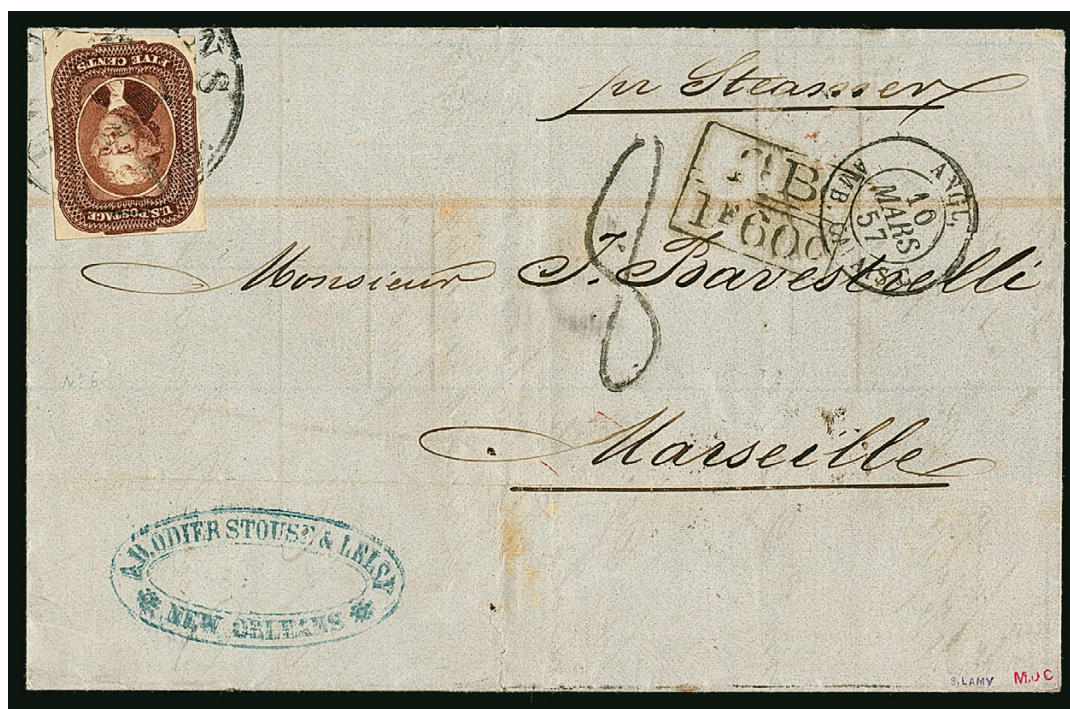 FIVE CENTS
U.S. POSTAGE
NS
pr Steamer
GB
1F60c
ANGL.
10
MARS
57
AMB. CALAIS
8
Monsieur J. Bavestrelli
Marseille
No 6
ODIER STOUSE & LELSY
NEW ORLEANS
S. LAMY
M.u C